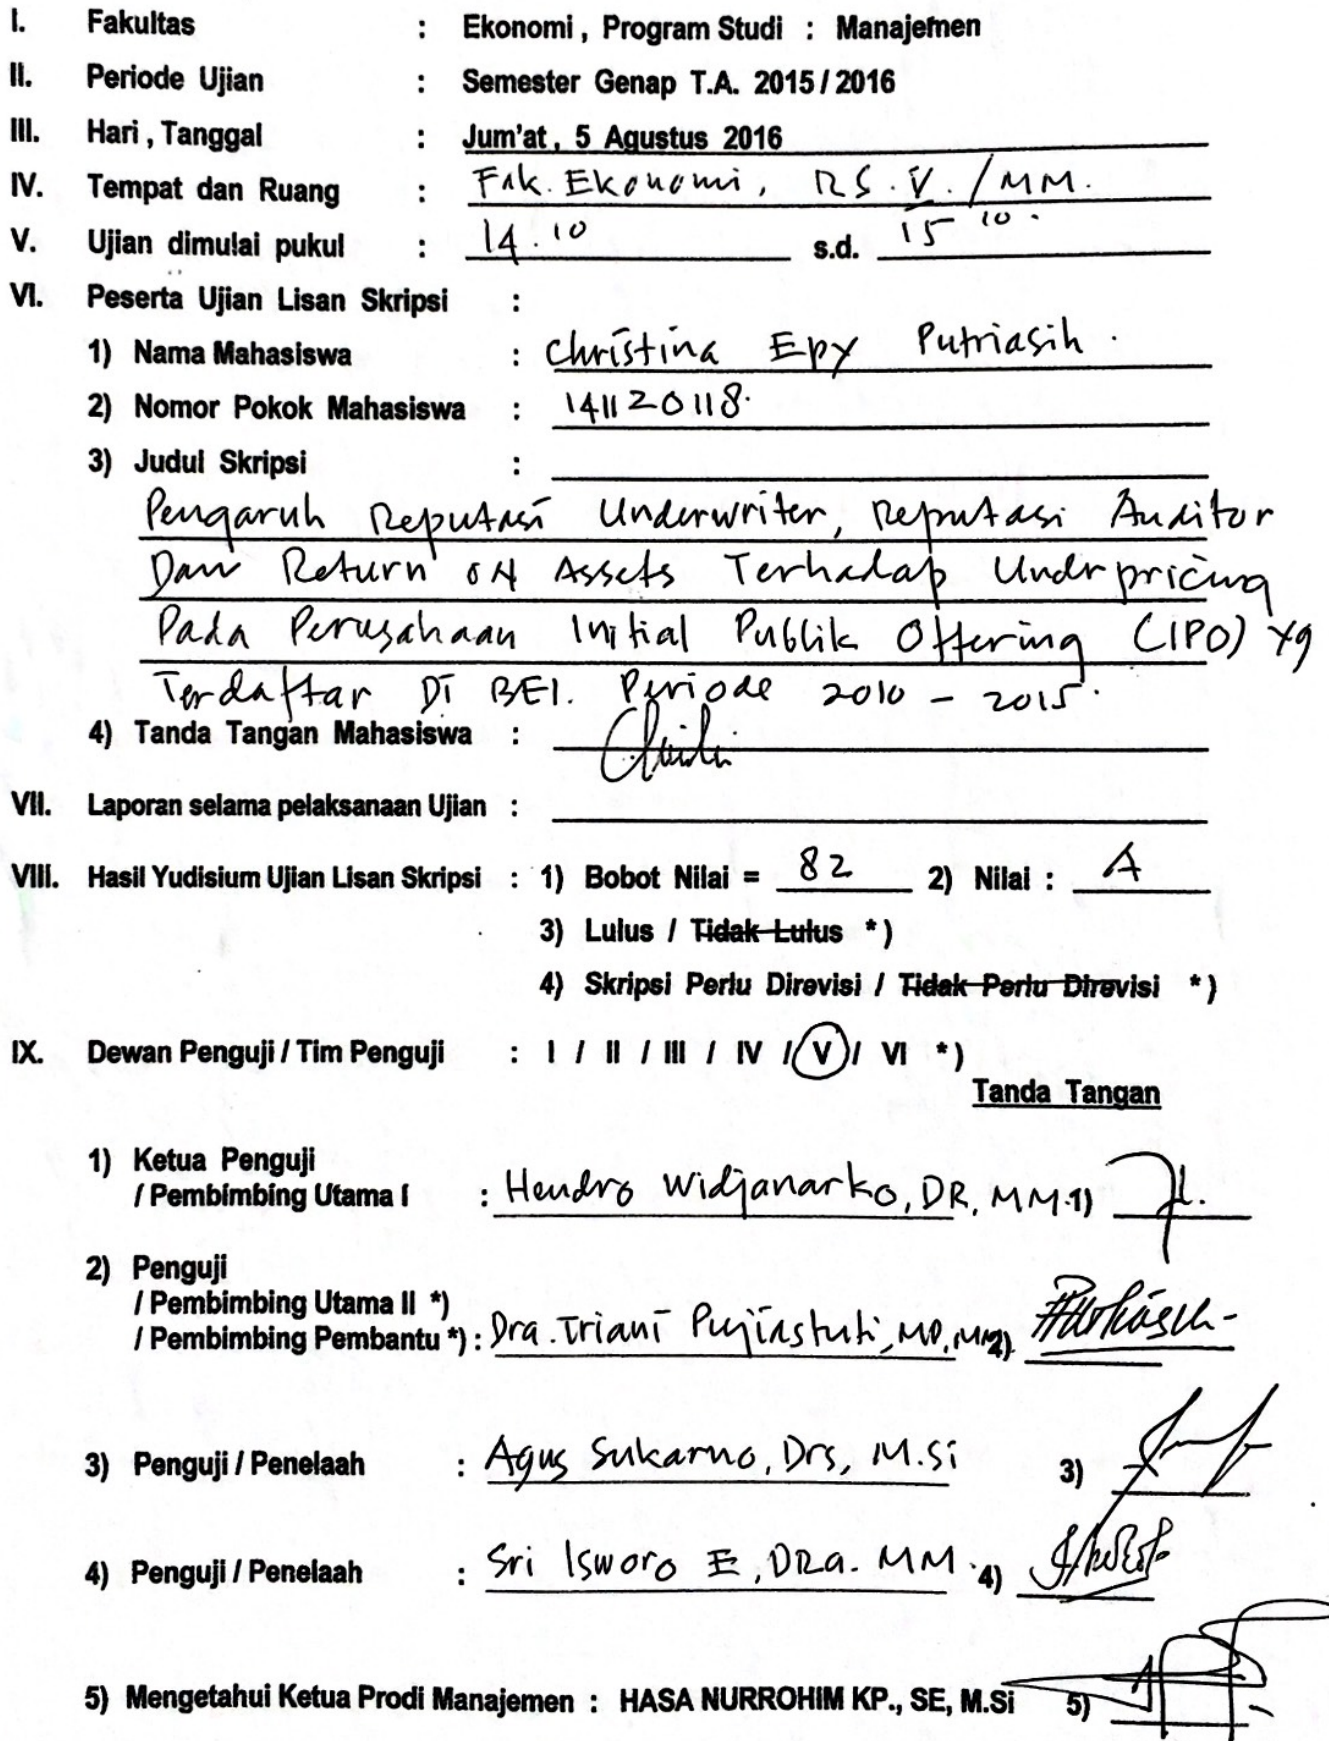 I. Fakultas : Ekonomi, Program Studi : Manajemen
II. Periode Ujian : Semester Genap T.A. 2015 / 2016
III. Hari, Tanggal : Jum'at, 5 Agustus 2016
IV. Tempat dan Ruang : Fak. Ekonomi, RS. V. / MM.
V. Ujian dimulai pukul : 14.10 s.d. 15 10.
VI. Peserta Ujian Lisan Skripsi :
1) Nama Mahasiswa : Christina Epy Putriasih.
2) Nomor Pokok Mahasiswa : 141120118.
3) Judul Skripsi :
Pengaruh Reputasi Underwriter, Reputasi Auditor
Dan Return on Assets Terhadap Undrpricing
Pada Perusahaan Initial Publik Offering (IPO) yg
Terdaftar Di BEI. Periode 2010 - 2015.
4) Tanda Tangan Mahasiswa :
VII. Laporan selama pelaksanaan Ujian :
VIII. Hasil Yudisium Ujian Lisan Skripsi : 1) Bobot Nilai = 82 2) Nilai : A
3) Lulus / Tidak Lulus *)
4) Skripsi Perlu Direvisi / Tidak Perlu Direvisi *)
IX. Dewan Penguji / Tim Penguji : I / II / III / IV / V / VI *)
Tanda Tangan
1) Ketua Penguji
/ Pembimbing Utama I : Hendro Widjanarko, DR, MM. 1)
2) Penguji
/ Pembimbing Utama II *)
/ Pembimbing Pembantu *) : Dra. Triani Pujiastuti, MP, MM 2)
3) Penguji / Penelaah : Agus Sukarno, Drs, M.Si 3)
4) Penguji / Penelaah : Sri Isworo E, DRa. MM. 4)
5) Mengetahui Ketua Prodi Manajemen : HASA NURROHIM KP., SE, M.Si 5)